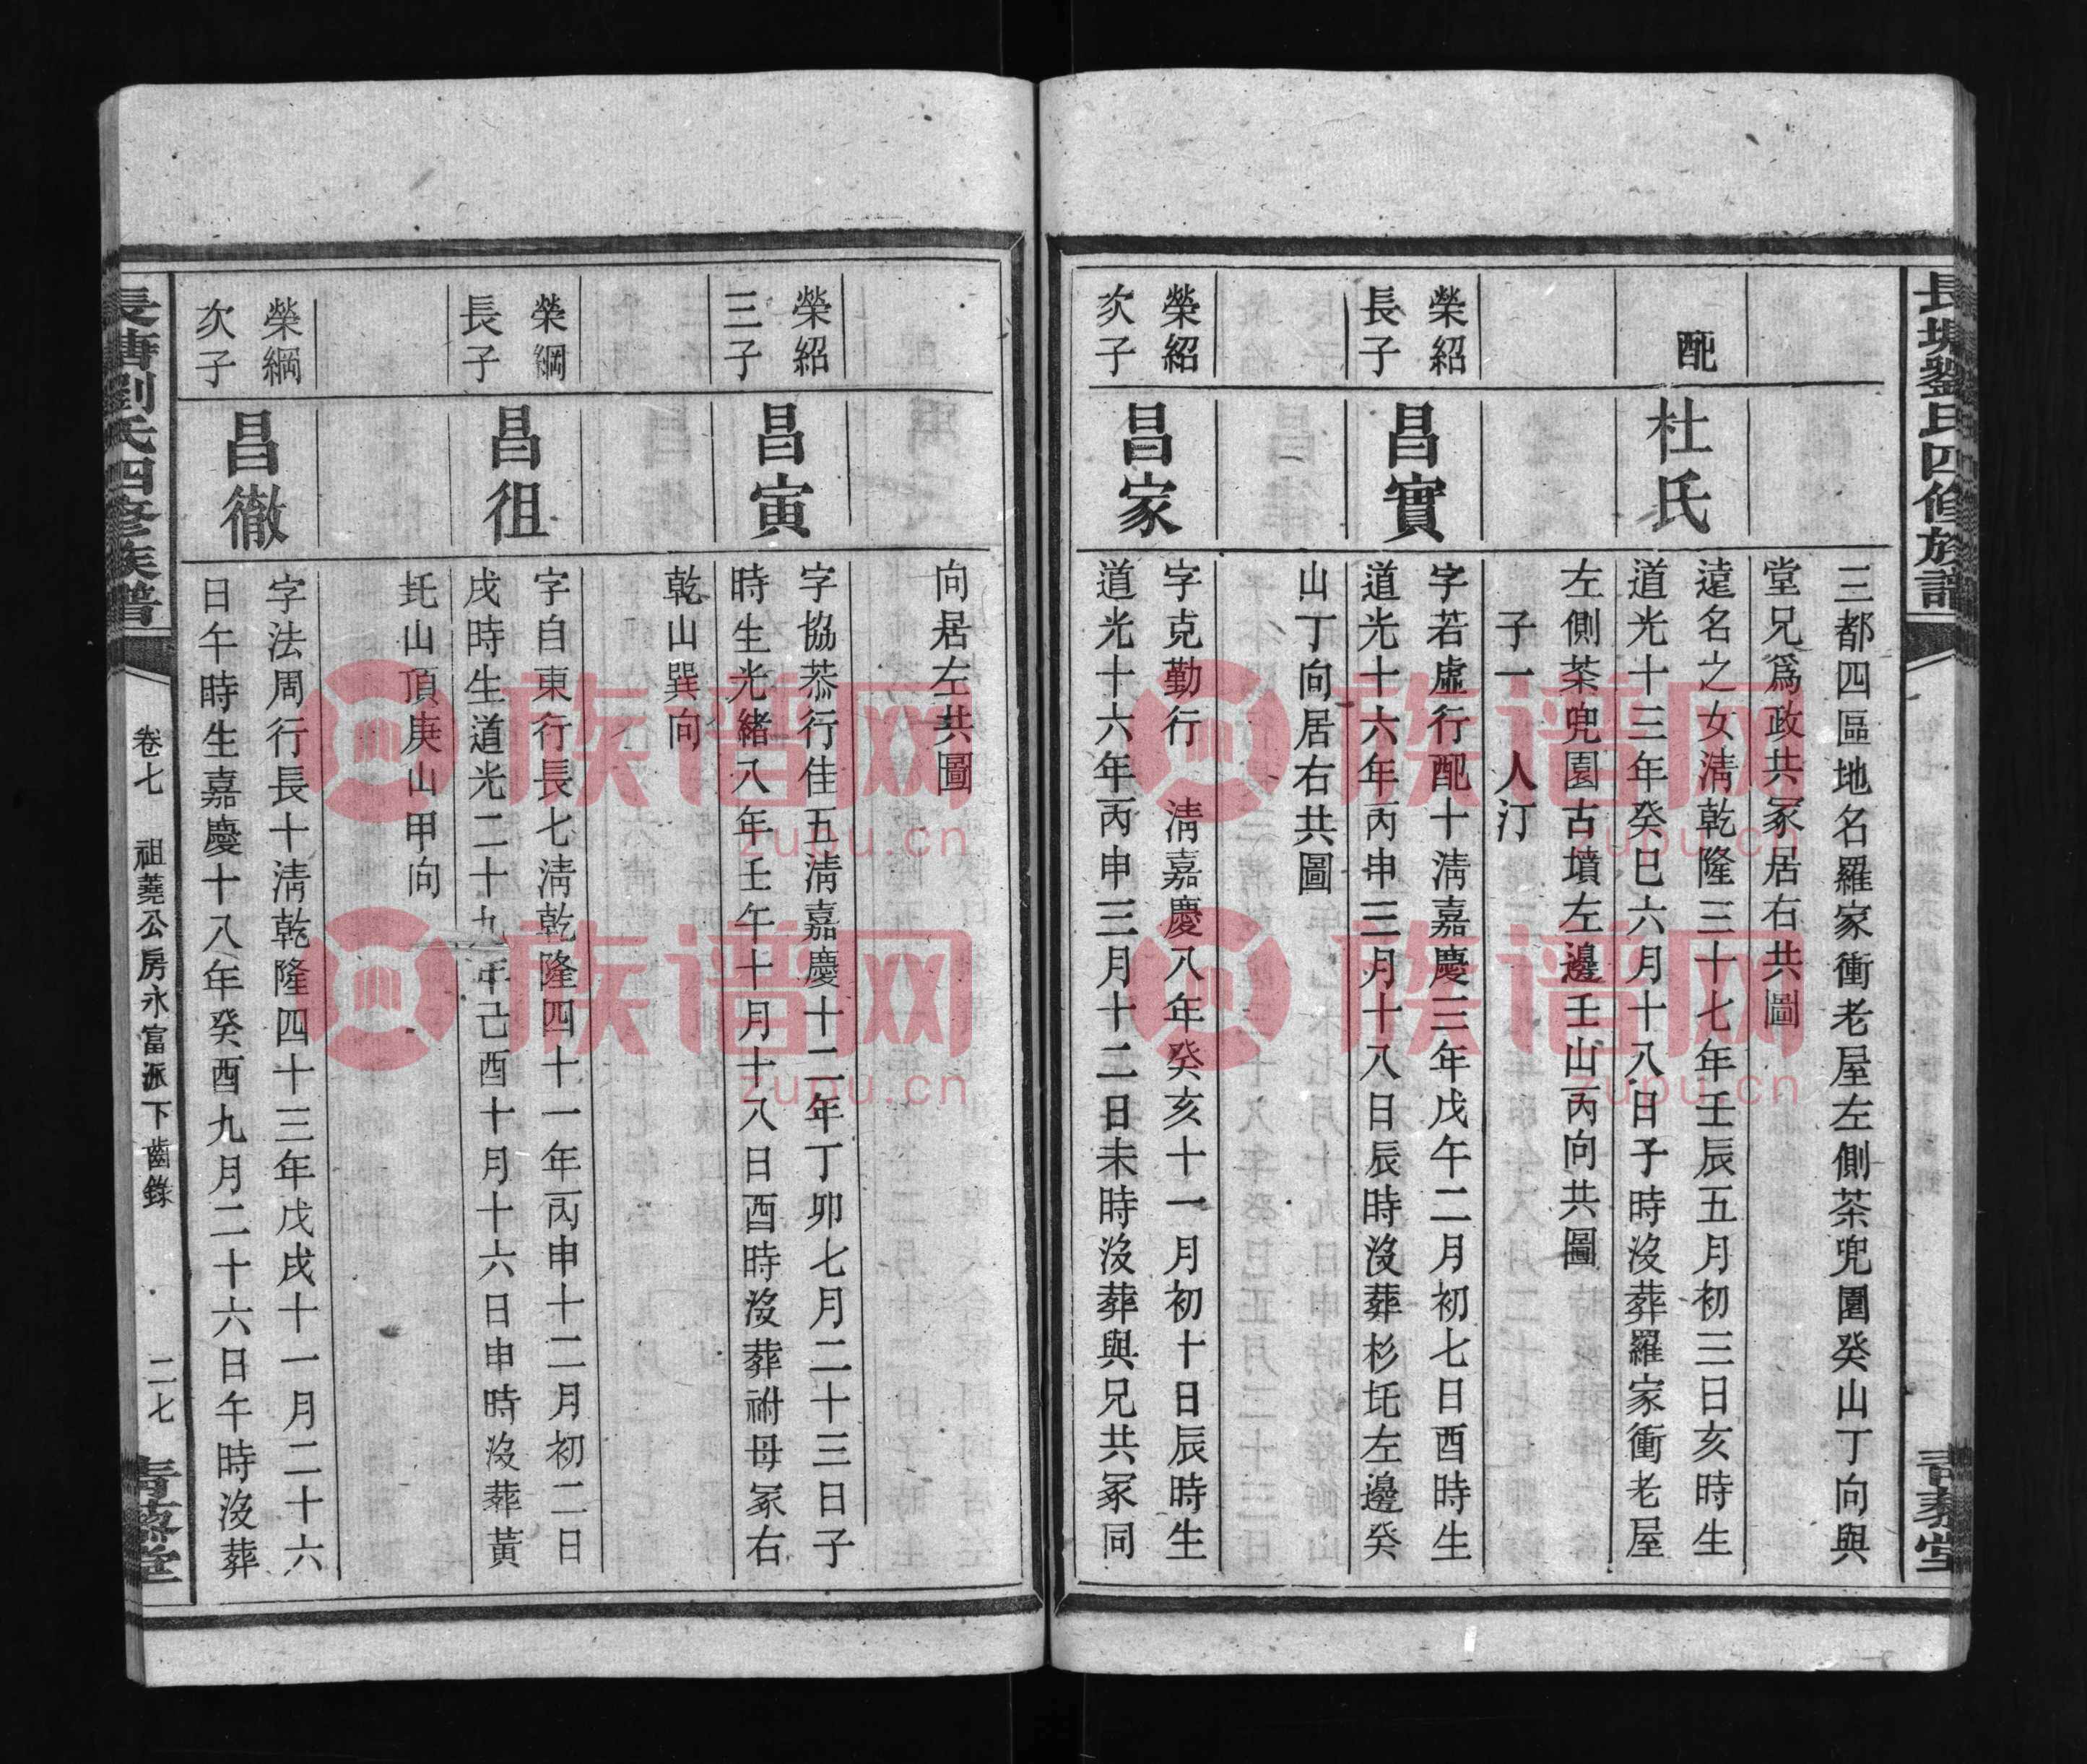 長塘劉氏四修族譜
青藜堂
三都四區地名羅家衝老屋左側茶兜園癸山丁向與
堂兄爲政共冢居右共圖
配
杜氏
遠名之女淸乾隆三十七年壬辰五月初三日亥時生
道光十三年癸巳六月十八日子時沒葬羅家衝老屋
左側茶兜園古墳左邊壬山丙向共圖
子一　人汀
榮紹
長子
昌實
字若虛行配十淸嘉慶三年戊午二月初七日酉時生
道光十六年丙申三月十八日辰時沒葬杉坉左邊癸
山丁向居右共圖
榮紹
次子
昌家
字克勤行　淸嘉慶八年癸亥十一月初十日辰時生
道光十六年丙申三月十二日未時沒葬與兄共冢同
向居左共圖
榮紹
三子
昌寅
字協恭行佳五淸嘉慶十二年丁卯七月二十三日子
時生光緒八年壬午十月十八日酉時沒葬祔母冢右
乾山巽向
榮綱
長子
昌徂
字自東行長七淸乾隆四十一年丙申十二月初二日
戌時生道光二十九年己酉十月十六日申時沒葬黃
坉山頂庚山甲向
榮綱
次子
昌徹
字法周行長十淸乾隆四十三年戊戌十一月二十六
日午時生嘉慶十八年癸酉九月二十六日午時沒葬
長塘劉氏四修族譜
卷七　祖蕘公房永富派下齒錄
二七
青藜堂
族谱网
zupu.cn
族谱网
zupu.cn
族谱网
zupu.cn
族谱网
zupu.cn